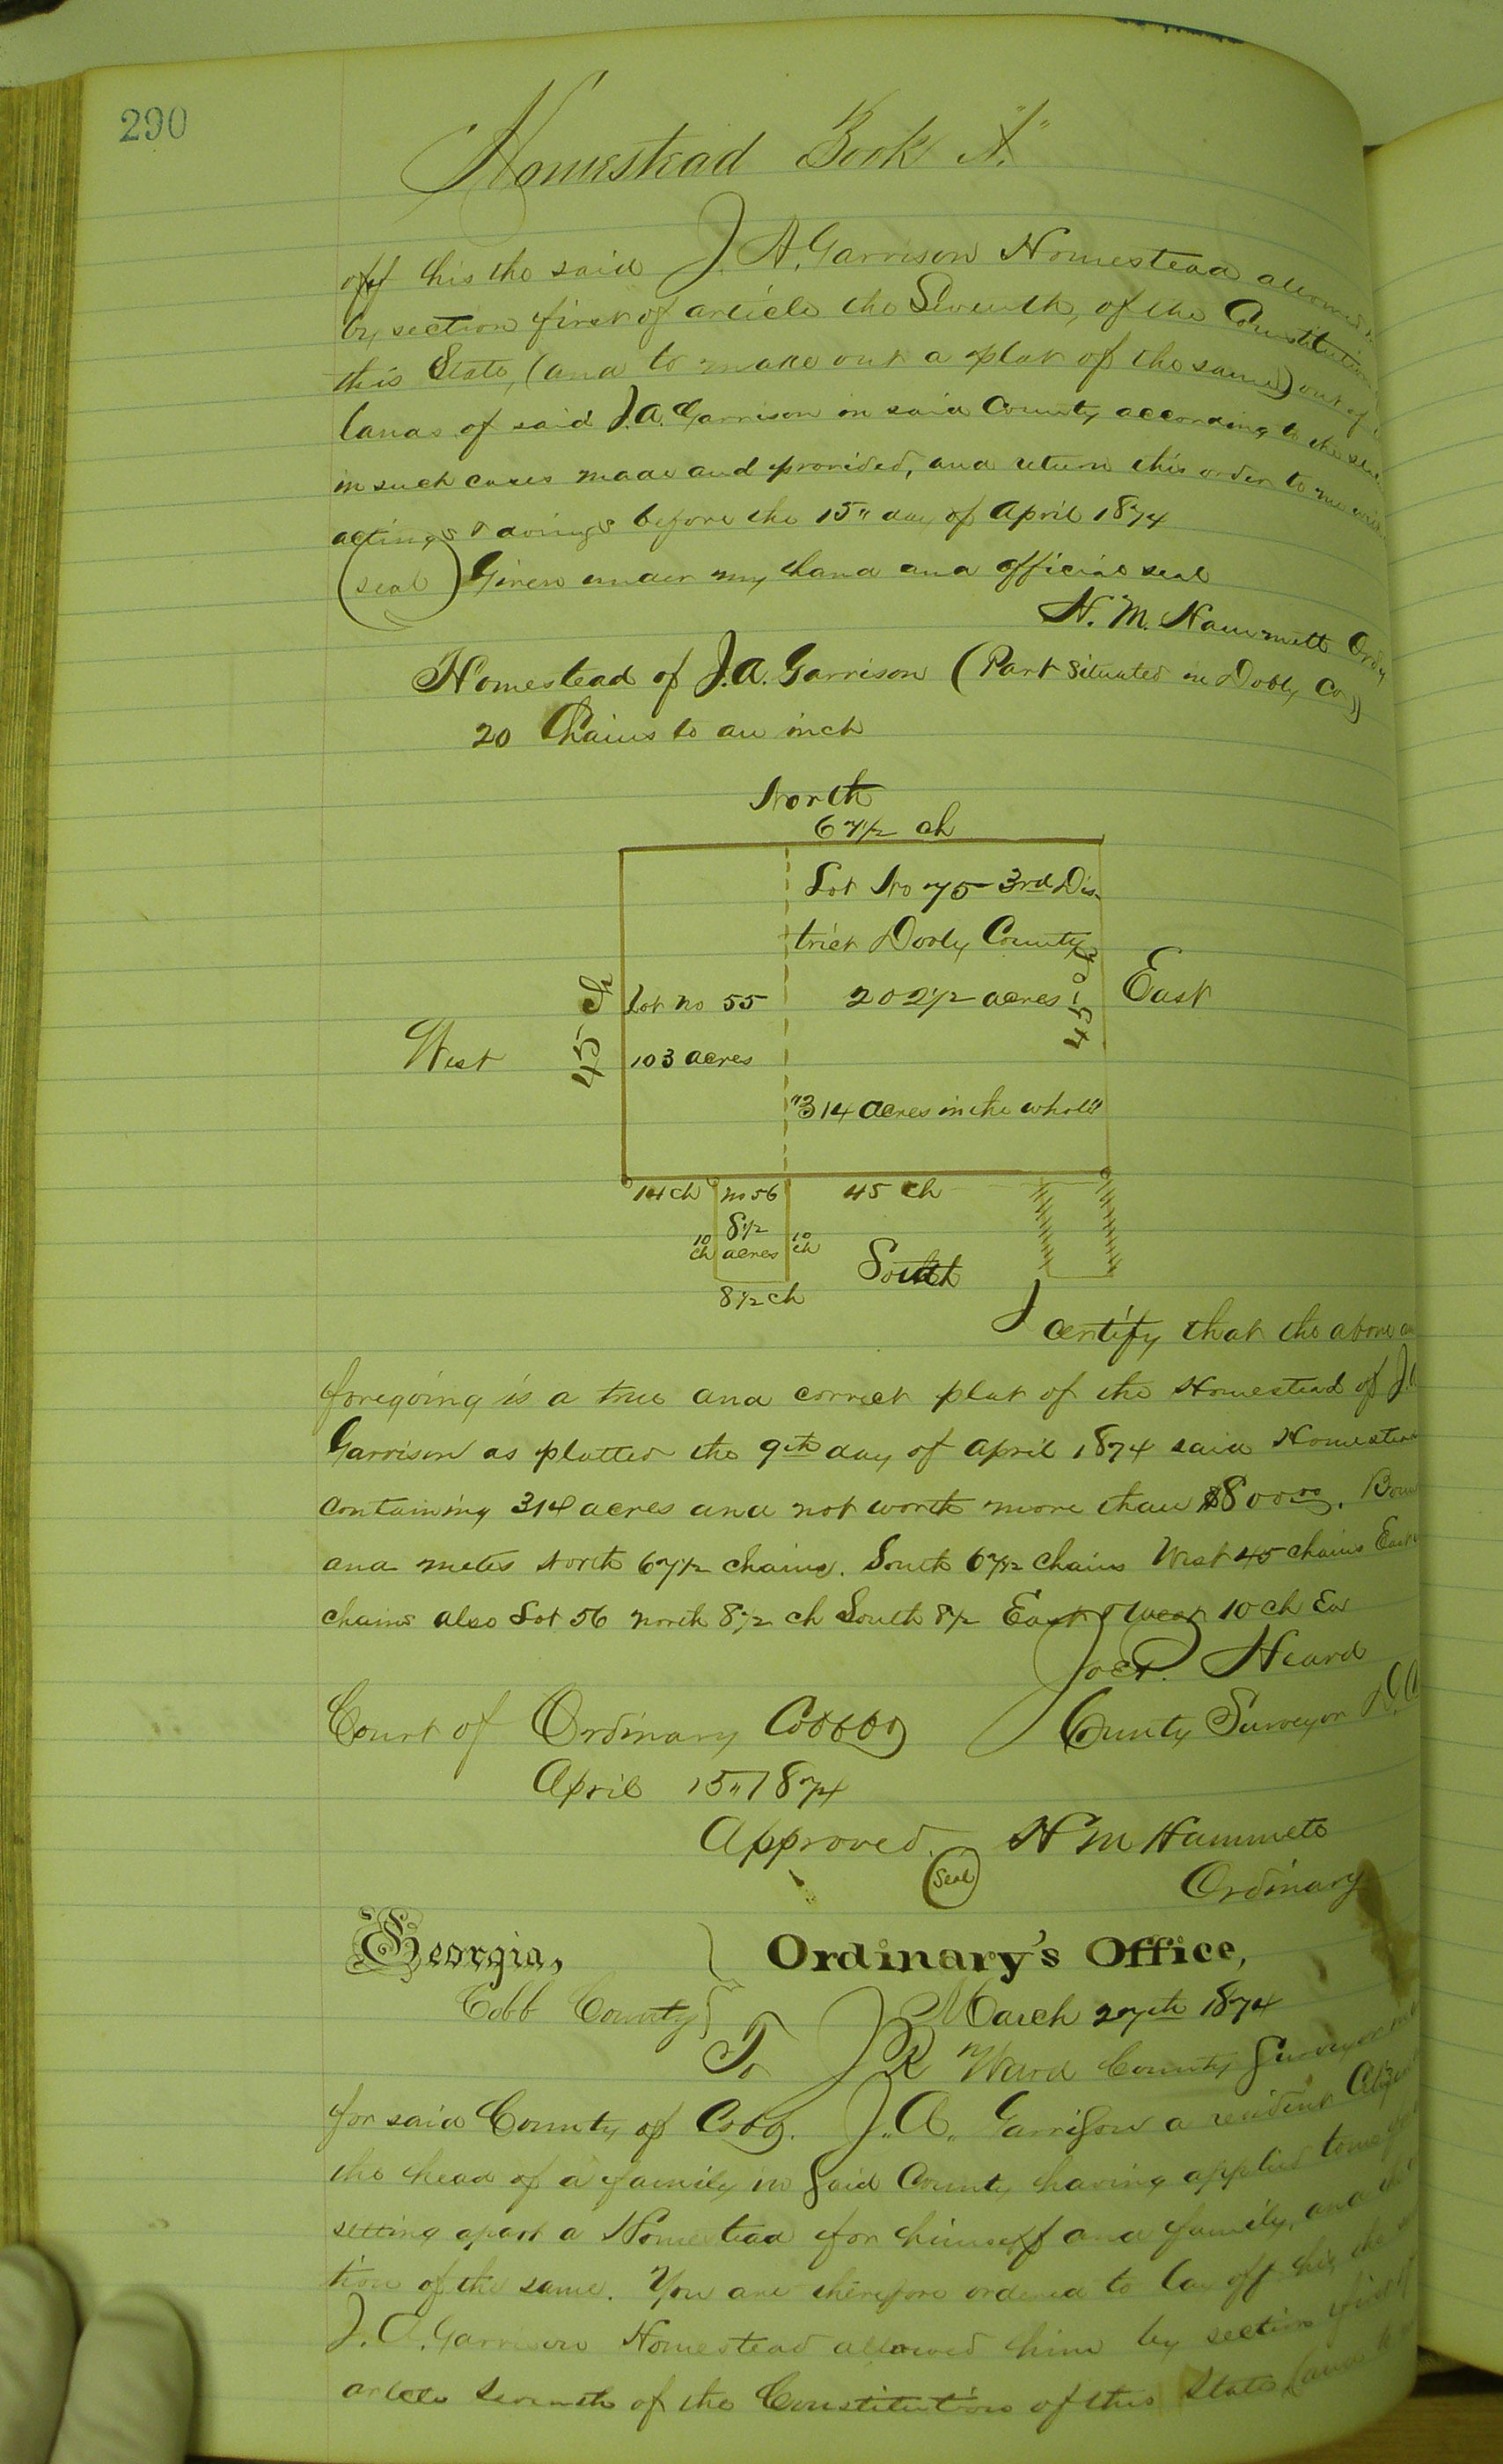 290
Homestead Book "A."
off his the said J. A. Garrison Homestead allowed
by section first of article the Seventh, of the Constitution
this State, (and to make out a plat of the same) out of
lands of said J. A. Garrison in said County according to the
in such cases made and provided, and return this order to me with
actings & doings before the 15" day of April 1874
(seal) Given under my hand and official seal
H. M. Hammett Ordy
Homestead of J. A. Garrison (Part Situated in Dooly Co)
20 Chains to an inch
North
67 1/2 ch
Lot No 75 3rd Dis-
trict Dooly County
Lot no 55 202 1/2 acres
45 ch
45 ch
East
West
103 acres
"314 acres in the whole"
14 ch no 56 45 ch
8 1/2
10 ch acres 10 ch
South
8 1/2 ch
I certify that the above
foregoing is a true and correct plat of the Homestead of J. A.
Garrison as platted the 9th day of April 1874 said Homestead
containing 314 acres and not worth more than $800.00. Boun
and metes North 67 1/2 chains. South 67 1/2 chains West 45 chains East
chains also Lot 56 north 8 1/2 ch South 8 1/2 East & West 10 ch Ea
Heard
Court of Ordinary Cobb Co County Surveyor D.C.
April 15" 1874
Approved. H M Hammett
(Seal) Ordinary
Georgia, } Ordinary's Office,
Cobb County } March 27th 1874
To J R Ward County Surveyor
for said County of Cobb. J. A. Garrison a resident Citizen
the head of a family in said County having applied to me for
setting apart a Homestead for himself and family, and
tion of the same. You are therefore ordered to lay off his, the
J. A. Garrison Homestead allowed him by section first of
article Seventh of the Constitution of this State (and to